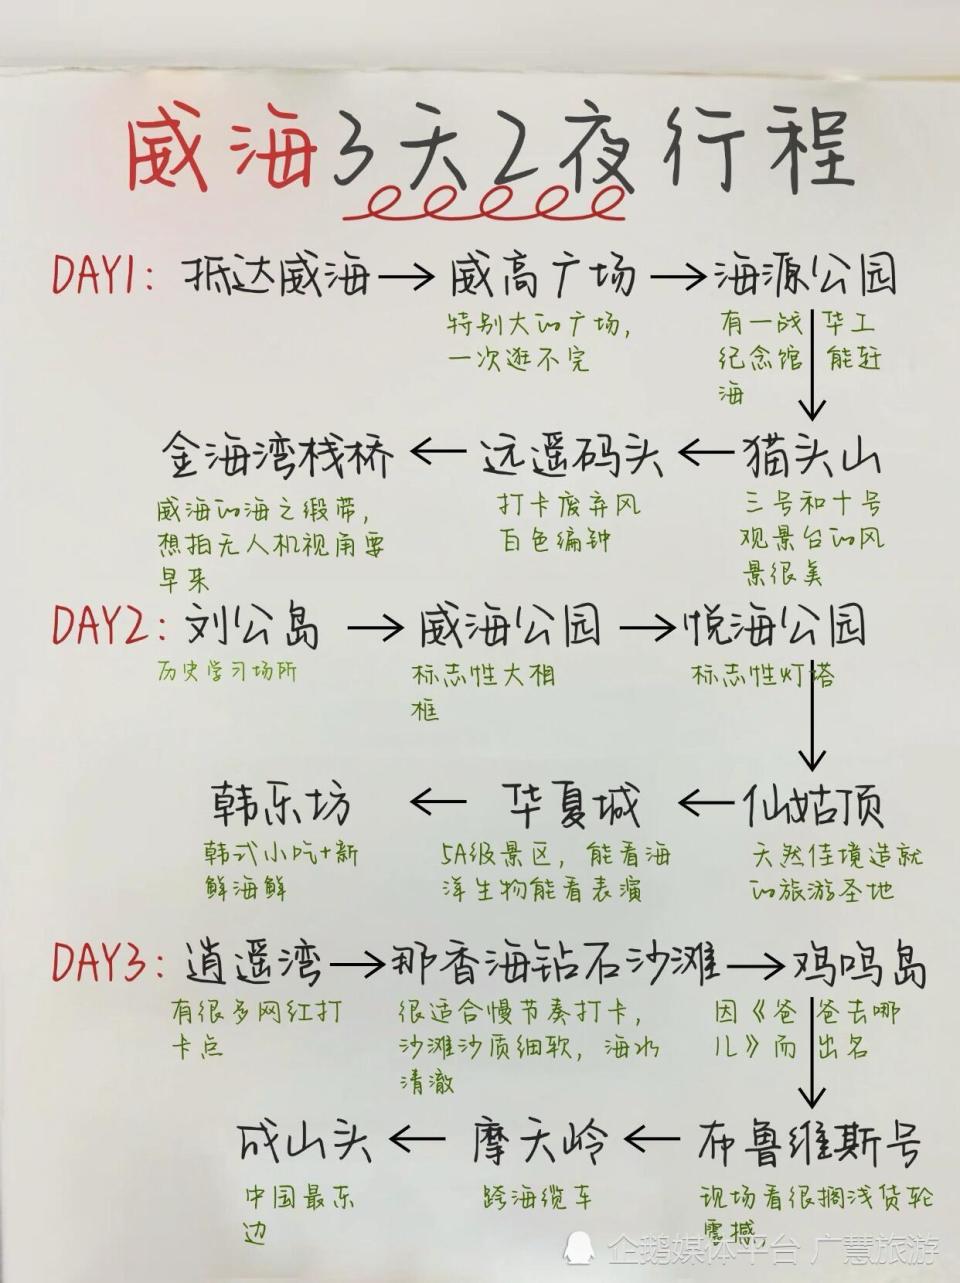 威海3天2夜行程
DAY1: 抵达威海→威高广场→海源公园
特别大的广场，
一次逛不完
有一战华工
纪念馆能赶
海
金海湾栈桥←远遥码头←猫头山
威海的海之缎带，
想拍无人机视角要
早来
打卡废弃风
百色编钟
三号和十号
观景台的风
景很美
DAY2: 刘公岛→威海公园→悦海公园
历史学习场所
标志性大相
框
标志性灯塔
韩乐坊←华夏城←仙姑顶
韩式小吃+新
鲜海鲜
5A级景区，能看海
洋生物能看表演
天然佳境造就
的旅游圣地
DAY3: 逍遥湾→那香海钻石沙滩→鸡鸣岛
有很多网红打
卡点
很适合慢节奏打卡，
沙滩沙质细软，海水
清澈
因《爸爸去哪
儿》而出名
成山头←摩天岭←布鲁维斯号
中国最东
边
跨海缆车
现场看很搁浅货轮
震撼，
企鹅媒体平台 广慧旅游